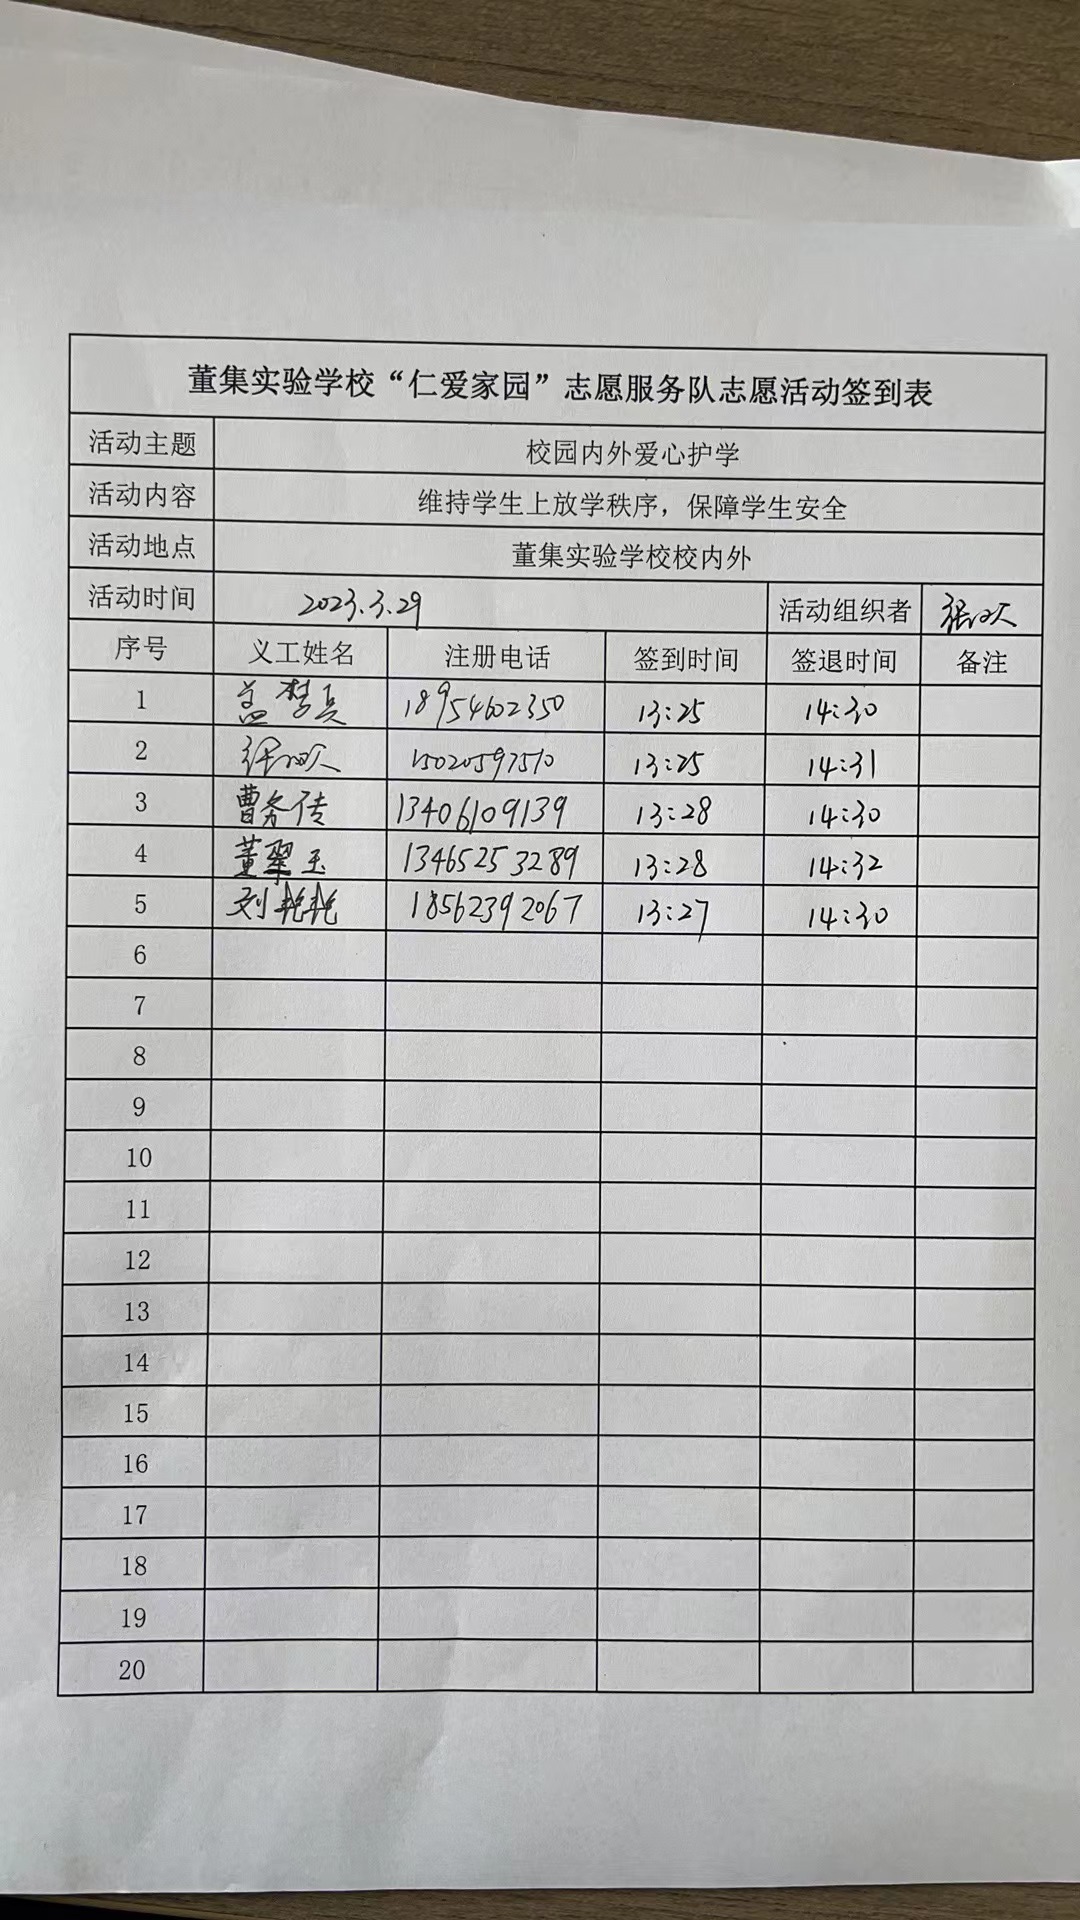 董集实验学校“仁爱家园”志愿服务队志愿活动签到表
活动主题 校园内外爱心护学
活动内容 维持学生上放学秩序，保障学生安全
活动地点 董集实验学校校内外
活动时间 2023.3.29 活动组织者
序号 义工姓名 注册电话 签到时间 签退时间 备注
1 18954602350 13:25 14:30
2 15020597510 13:25 14:31
3 曹务传 13406109139 13:28 14:30
4 董翠玉 13465253289 13:28 14:32
5 刘艳艳 18562392067 13:27 14:30
6
7
8
9
10
11
12
13
14
15
16
17
18
19
20